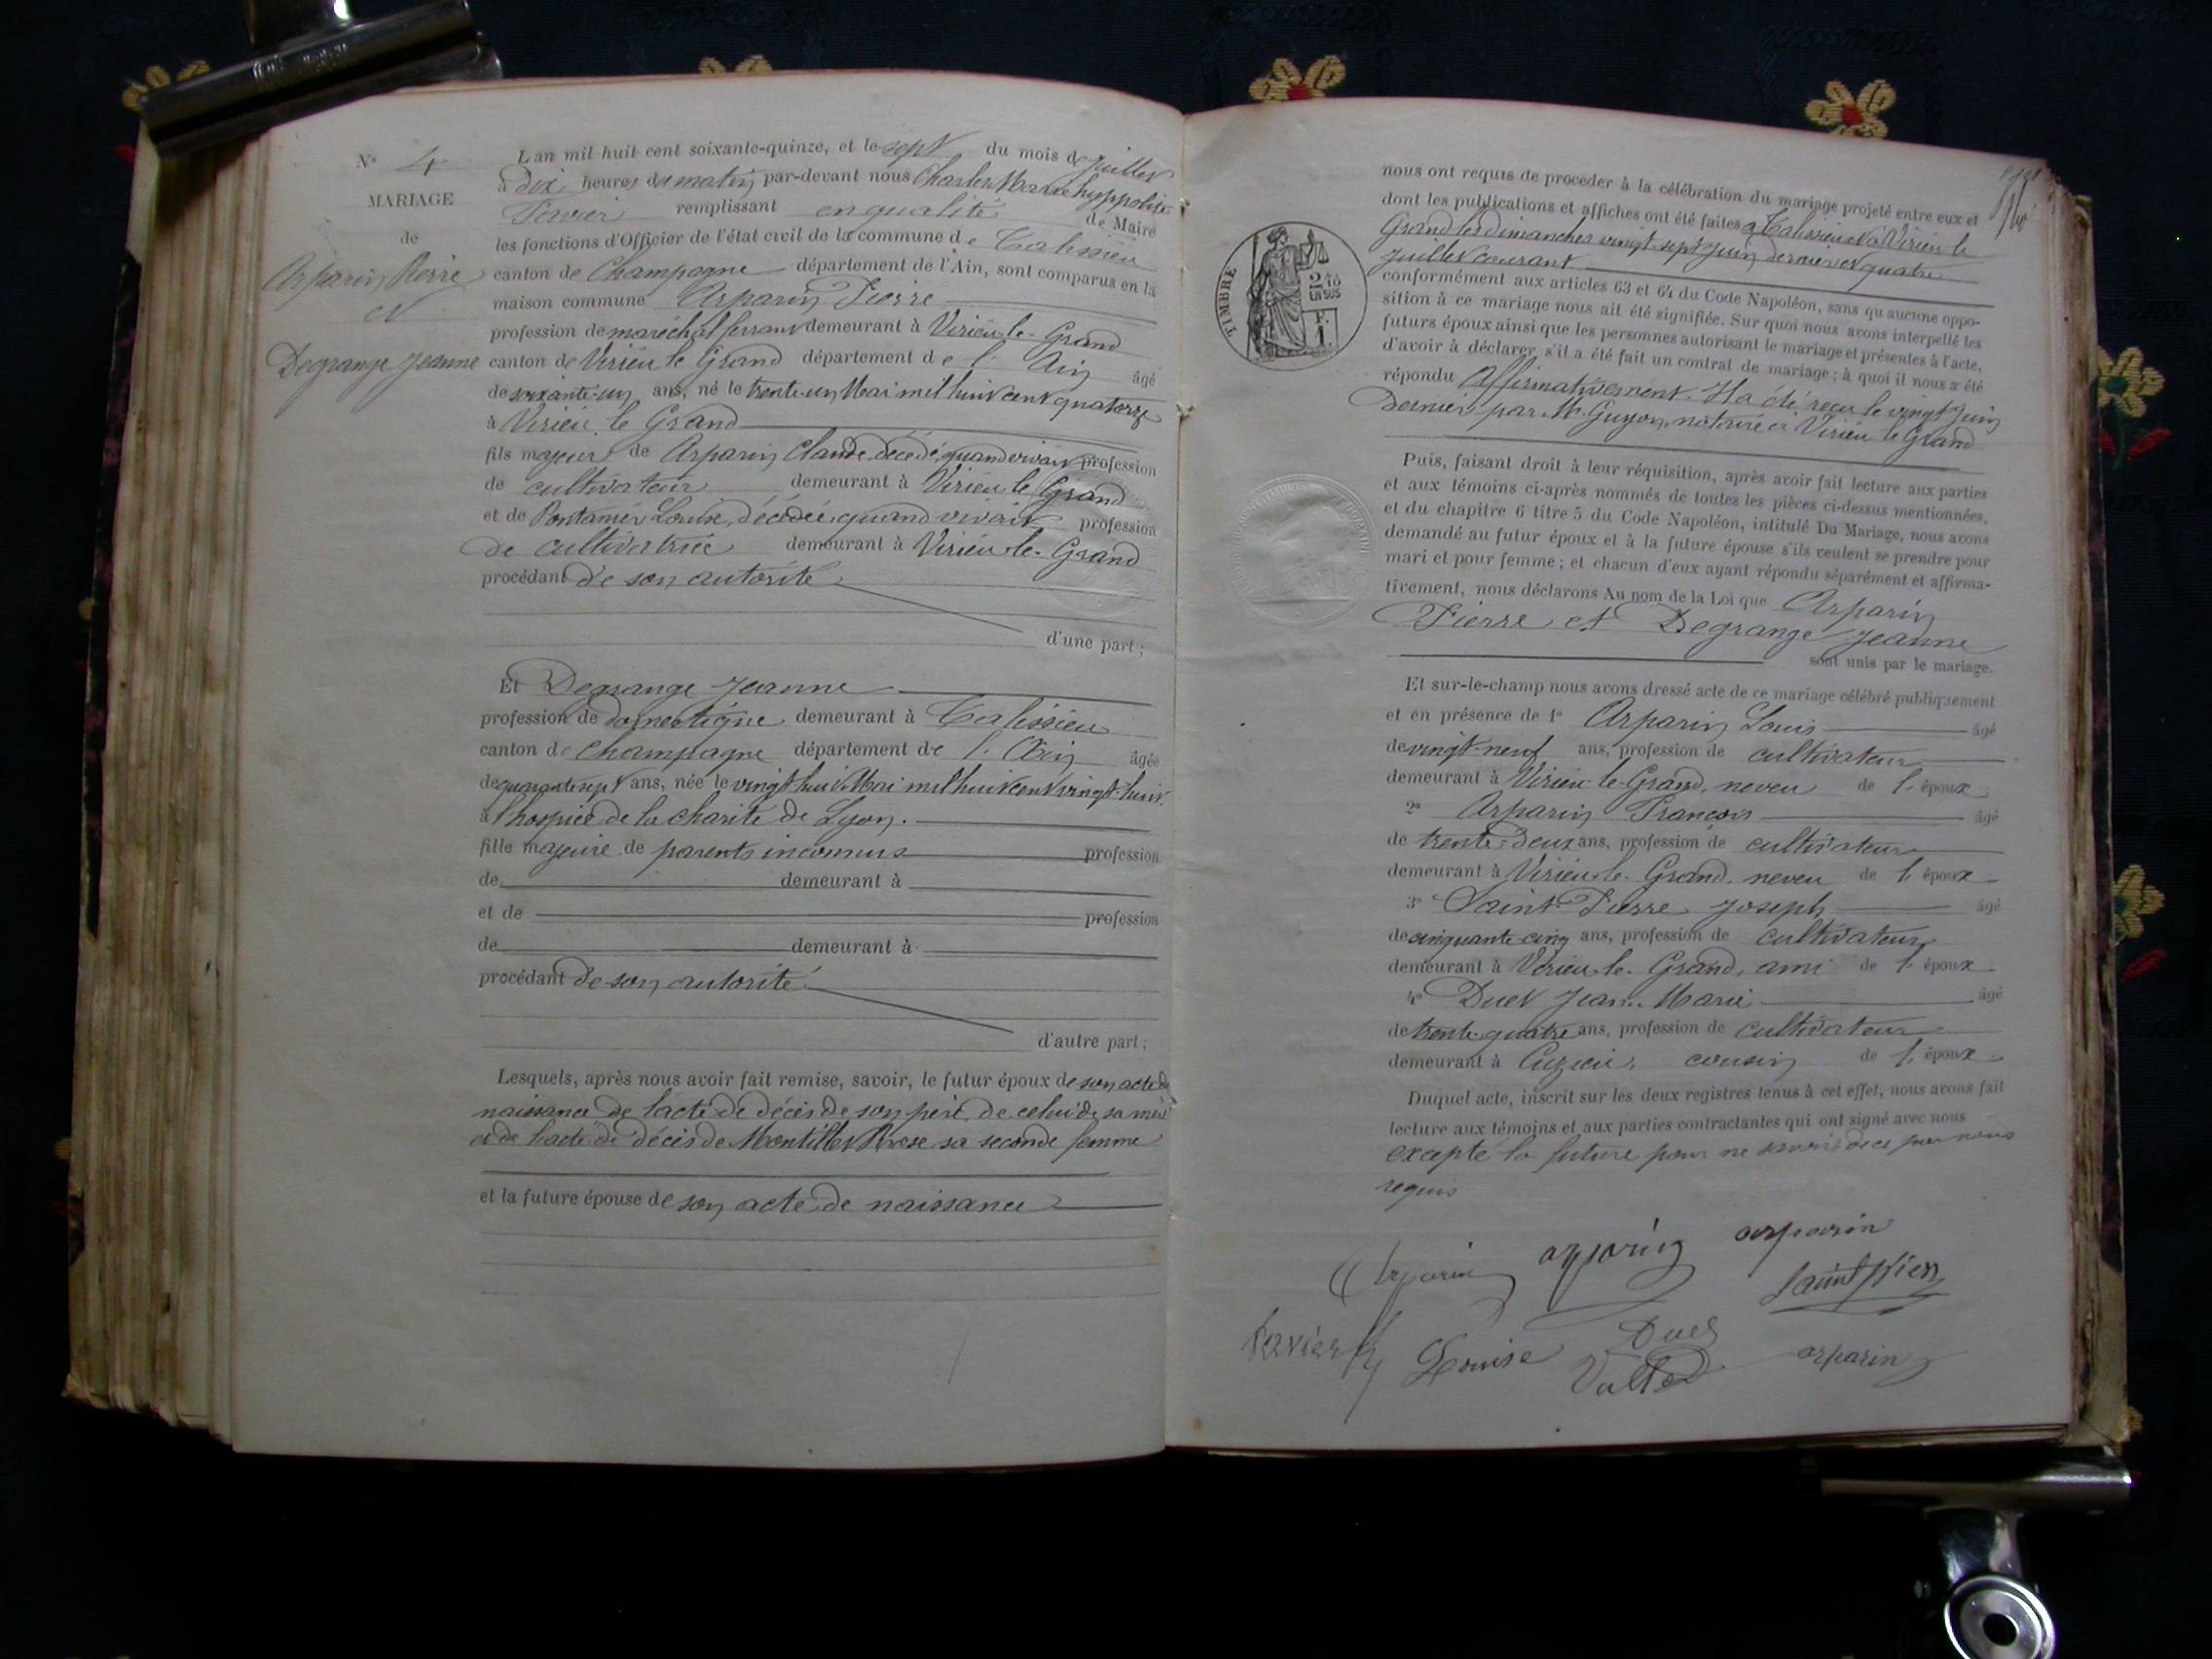 N° 4
MARIAGE
de
Arparin Pierre
et
Degrange Jeanne
L'an mil huit cent soixante-quinze, et le sept du mois de Juillet
à dix heures du matin par-devant nous Charles Marie hyppolite
remplissant en qualité de Maire
les fonctions d'Officier de l'état civil de la commune de Talissieu
canton de Champagne département de l'Ain, sont comparus en la
maison commune Arparin Pierre
profession de maréchal ferrant demeurant à Virieu-le-Grand
canton de Virieu le Grand département de l'Ain âgé
de soixante-un ans, né le trente-un Mai mil huit cent quatorze
à Virieu le Grand
fils majeur de Arparin Claude, décédé, quand vivait profession
de cultivateur demeurant à Virieu le Grand
et de Louise, décédée, quand vivait profession
de cultivatrice demeurant à Virieu-le-Grand
procédant de son autorité
d'une part;
Et Degrange Jeanne
profession de domestique demeurant à Talissieu
canton de Champagne département de l'Ain âgée
de quarante sept ans, née le vingt huit Mai mil huit cent vingt huit
à l'hospice de la charité de Lyon.
fille majeure de parents inconnus profession
de demeurant à
et de profession
de demeurant à
procédant de son autorité
d'autre part;
Lesquels, après nous avoir fait remise, savoir, le futur époux de son acte de
naissance de l'acte de décès de son père, de celui de sa mère
et de l'acte de décès de sa seconde femme
et la future épouse de son acte de naissance
nous ont requis de procéder à la célébration du mariage projeté entre eux et
dont les publications et affiches ont été faites à Talissieu et à Virieu le
Grand les dimanches vingt-sept Juin dernier et quatre
Juillet courant
conformément aux articles 63 et 64 du Code Napoléon, sans qu'aucune oppo-
sition à ce mariage nous ait été signifiée. Sur quoi nous avons interpellé les
futurs époux ainsi que les personnes autorisant le mariage et présentes à l'acte,
d'avoir à déclarer s'il a été fait un contrat de mariage; à quoi il nous a été
répondu Affirmativement. Il a été reçu le vingt Juin
dernier par M. Guyon, notaire à Virieu le Grand
TIMBRE
Puis, faisant droit à leur réquisition, après avoir fait lecture aux parties
et aux témoins ci-après nommés de toutes les pièces ci-dessus mentionnées,
et du chapitre 6 titre 5 du Code Napoléon, intitulé Du Mariage, nous avons
demandé au futur époux et à la future épouse s'ils veulent se prendre pour
mari et pour femme; et chacun d'eux ayant répondu séparément et affirma-
tivement, nous déclarons Au nom de la Loi que Arparin
Pierre et Degrange Jeanne
sont unis par le mariage.
Et sur-le-champ nous avons dressé acte de ce mariage célébré publiquement
et en présence de 1° Arparin Louis âgé
de vingt-neuf ans, profession de cultivateur
demeurant à Virieu-le-Grand, neveu de l'époux
2° Arparin François âgé
de trente-deux ans, profession de cultivateur
demeurant à Virieu-le-Grand, neveu de l'époux
3° Saint-Pierre Joseph âgé
de cinquante-cinq ans, profession de cultivateur
demeurant à Virieu-le-Grand, ami de l'époux
4° Duet Jean-Marie âgé
de trente-quatre ans, profession de cultivateur
demeurant à Cuzieu, cousin de l'époux
Duquel acte, inscrit sur les deux registres tenus à cet effet, nous avons fait
lecture aux témoins et aux parties contractantes qui ont signé avec nous
excepté la future pour ne savoir de ce par nous
requis
Arparin arparin arparin
Saint pierr
Louise Duet arparin